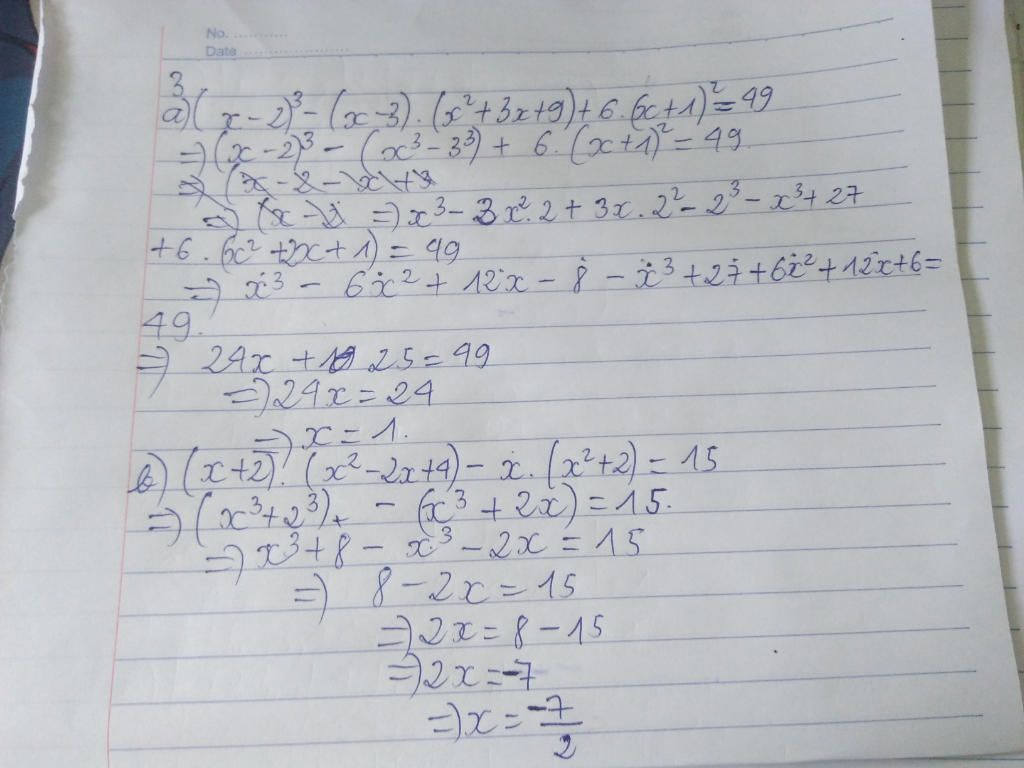 No. ............
Date .......................
3
a) (x - 2)³ - (x - 3) . (x² + 3x + 9) + 6 . (x + 1)² = 49
=> (x - 2)³ - (x³ - 3³) + 6 . (x + 1)² = 49
=> (x - 2 - x + 3
=> (x - 2 => x³ - 3x² . 2 + 3x . 2² - 2³ - x³ + 27
+ 6 . (x² + 2x + 1) = 49
=> x³ - 6x² + 12x - 8 - x³ + 27 + 6x² + 12x + 6 =
49.
=> 24x + 25 = 49
=> 24x = 24
=> x = 1.
b) (x + 2) . (x² - 2x + 4) - x . (x² + 2) = 15
=> (x³ + 2³) - (x³ + 2x) = 15.
=> x³ + 8 - x³ - 2x = 15
=> 8 - 2x = 15
=> 2x = 8 - 15
=> 2x = -7
=> x = -7/2